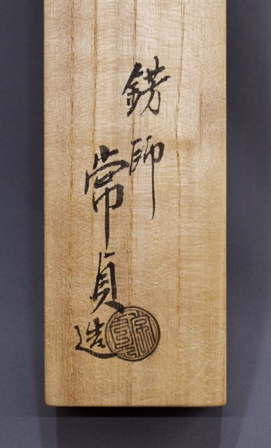 錺師常貞造